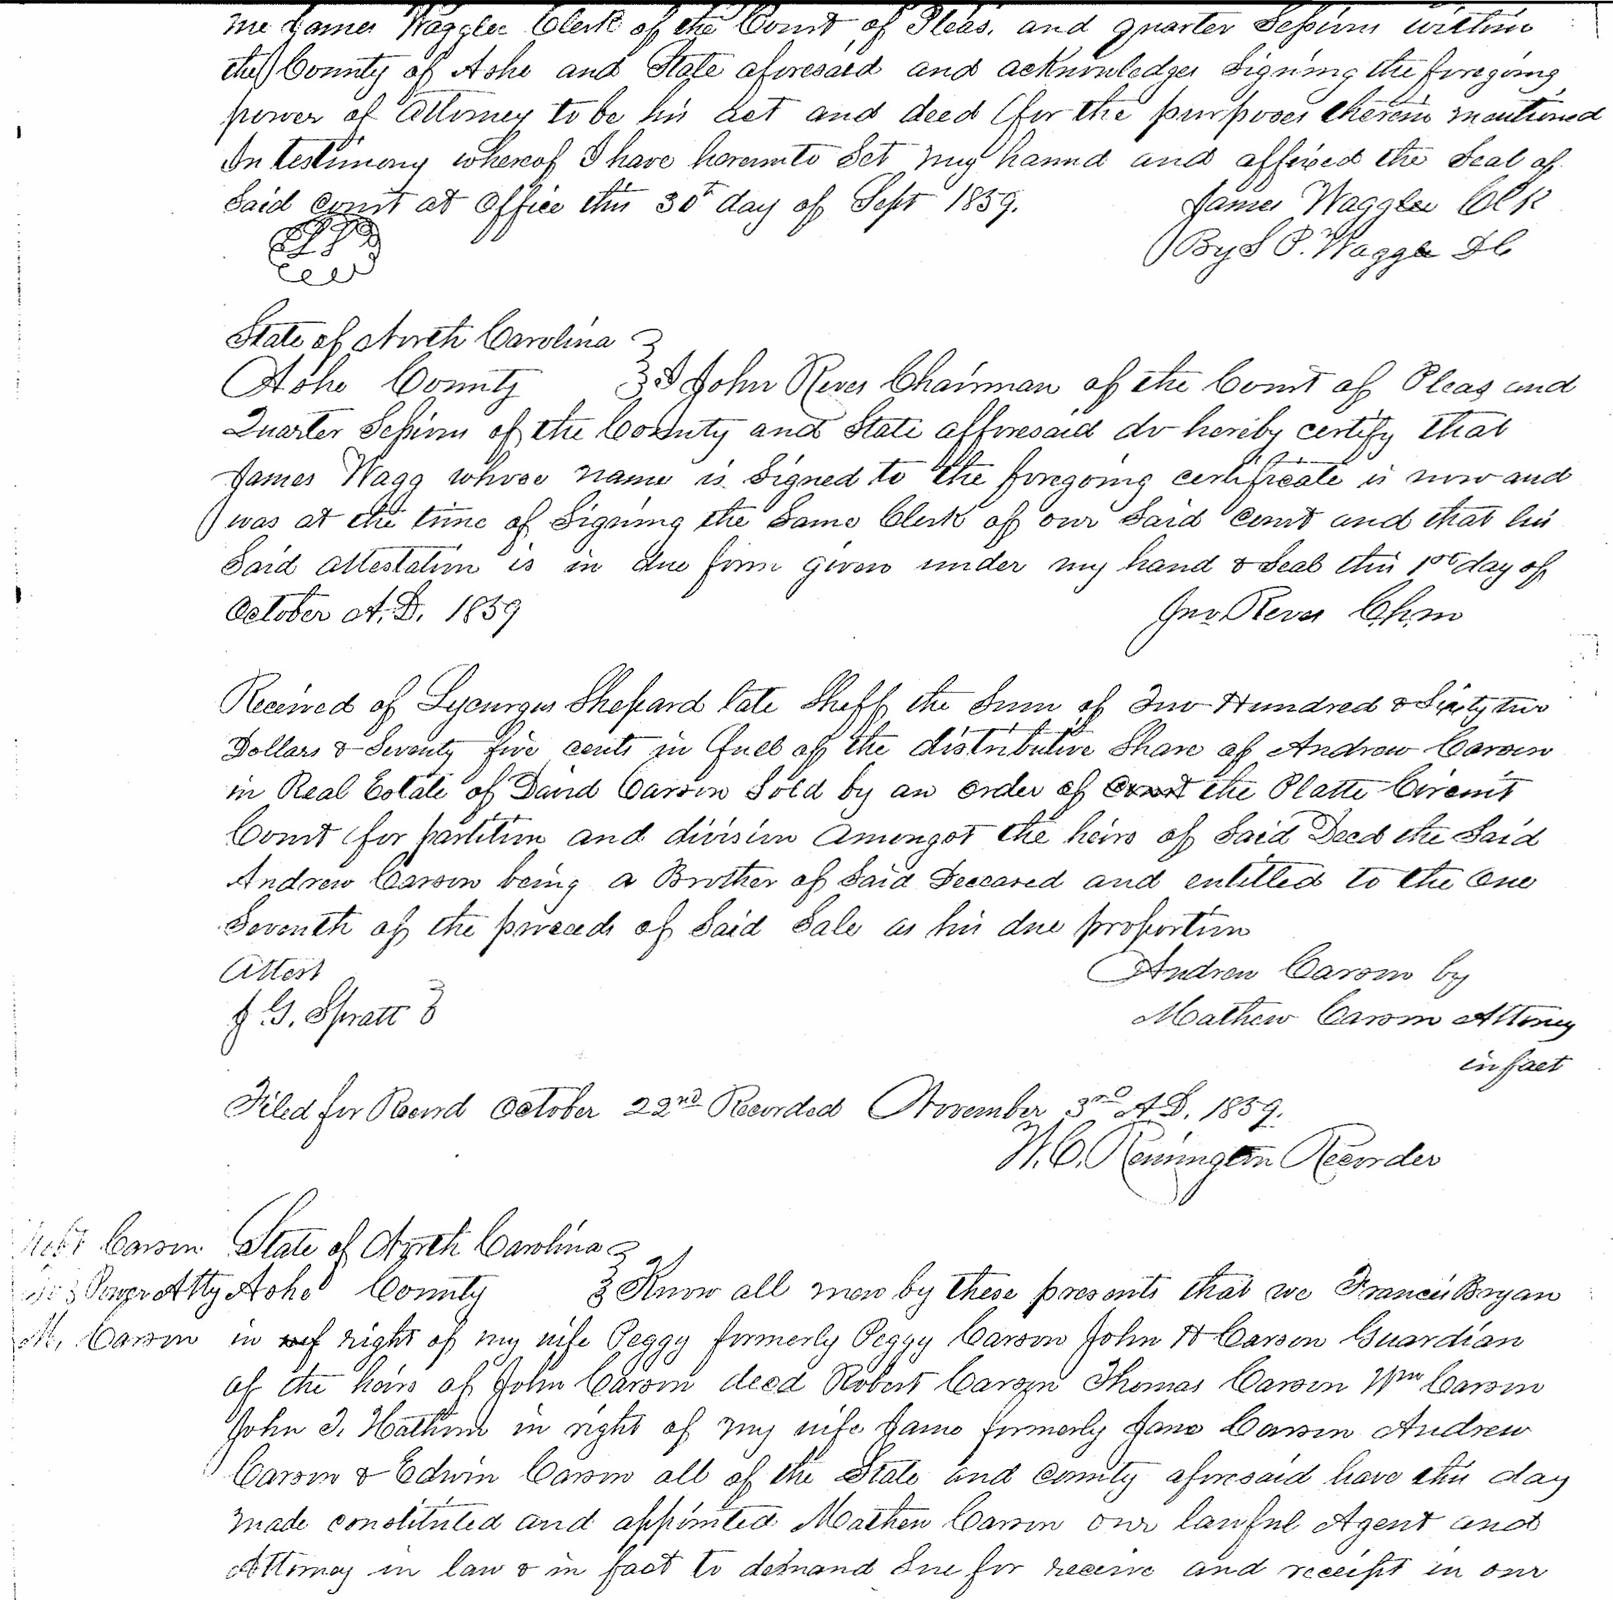 me James Waggler Clerk of the Court of Pleas. and quarter Sessions within
the County of Ashe and State aforesaid and acknowledges Signing the foregoing
power of attorney to be his act and deed for the purposes therein mentioned
In testimony whereof I have hereunto Set my hannd and affixed the Seal of
Said court at office this 30th day of Sept 1859.
James Waggler Clk
By S P. Wagg DC
State of North Carolina
Ashe County I John Reves Chairman of the Court of Pleas and
Quarter Sessions of the County and State afforesaid do hereby certify that
James Wagg whose name is Signed to the foregoing certificate is now and
was at the time of Signing the Same Clerk of our Said Court and that his
Said attestation is in due form given under my hand & Seal this 1st day of
October A.D. 1859
Jno. Reves Chm
Received of Lycurgus Shepard late Sheff the Sum of Two Hundred & Sixty two
Dollars & Seventy five cents in full of the distributive Share of Andrew Carson
in Real Estate of David Carson Sold by an order of Court the Platte Circuit
Court for partition and division amongst the heirs of Said Decd the Said
Andrew Carson being a Brother of Said Deceased and entitled to the One
Seventh of the proceeds of Said Sale as his due proportion
Attest
Andrew Carson by
J. G. Spratt
Mathew Carson Attorney
in fact
Filed for Record October 22nd Recorded November 3rd A.D. 1859.
W. C. Remington Recorder
Carson State of North Carolina
Power Atty Ashe County Know all men by these presents that we Francis Bryan
M. Carson in right of my wife Peggy formerly Peggy Carson John H Carson Guardian
of the heirs of John Carson decd Robert Carson Thomas Carson Wm Carson
John I. in right of my wife Jane formerly Jane Carson Andrew
Carson & Edwin Carson all of the State and County aforesaid have this day
made constituted and appointed Mathew Carson our lawful Agent and
Attorney in law & in fact to demand Sue for receive and receipt in our